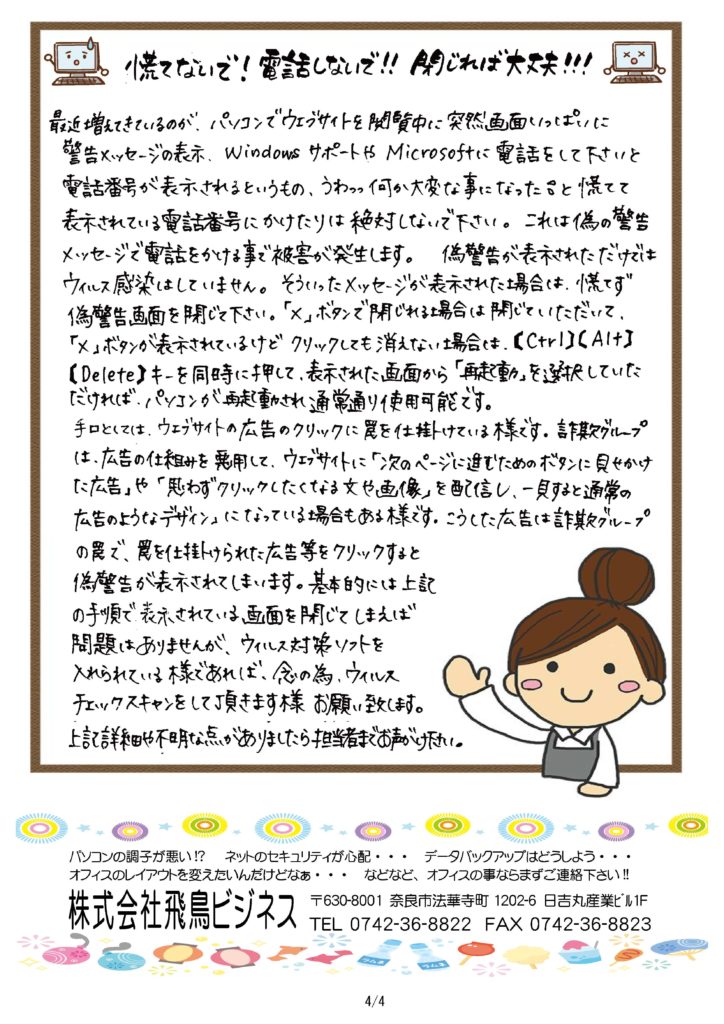 慌てないで！電話しないで！！閉じれば大丈夫！！！
最近増えてきているのが、パソコンでウェブサイトを閲覧中に突然画面いっぱいに
警告メッセージの表示、Windowsサポートや Microsoftに電話をして下さいと
電話番号が表示されるというもの、うわっっ何か大変な事になった。。と慌てて
表示されている電話番号にかけたりは絶対しないで下さい。これは偽の警告
メッセージで電話をかける事で被害が発生します。 偽警告が表示されただけでは
ウィルス感染はしていません。そういったメッセージが表示された場合は、慌てず
偽警告画面を閉じて下さい。「×」ボタンで閉じれる場合は閉じていただいて、
「×」ボタンが表示されているけど クリックしても消えない場合は、【Ctrl】【Alt】
【Delete】キーを同時に押して、表示された画面から「再起動」を選択していた
だければ、パソコンが再起動され通常通り使用可能です。
手口としては、ウェブサイトの広告のクリックに罠を仕掛けている様です。詐欺グループ
は、広告の仕組みを悪用して、ウェブサイトに「次のページに進むためのボタンに見せかけ
た広告」や「思わずクリックしたくなる文や画像」を配信し、一見すると通常の
広告のようなデザイン」になっている場合もある様です。こうした広告は詐欺グループ
の罠で、罠を仕掛けられた広告等をクリックすると
偽警告が表示されてしまいます。基本的には上記
の手順で表示されている、画面を閉じてしまえば
問題はありませんが、ウィルス対策ソフトを
入れられている様であれば、念の為、ウィルス
チェックスキャンをして頂きます様 お願い致します。
上記詳細や不明な点がありましたら担当者までお声がけ下さい。
パソコンの調子が悪い!? ネットのセキュリティが心配・・・ データバックアップはどうしよう・・・
オフィスのレイアウトを変えたいんだけどなぁ・・・ などなど、オフィスの事ならまずご連絡下さい!!
株式会社飛鳥ビジネス 〒630-8001 奈良市法華寺町 1202-6 日吉丸産業ビル1F
TEL 0742-36-8822 FAX 0742-36-8823
4/4